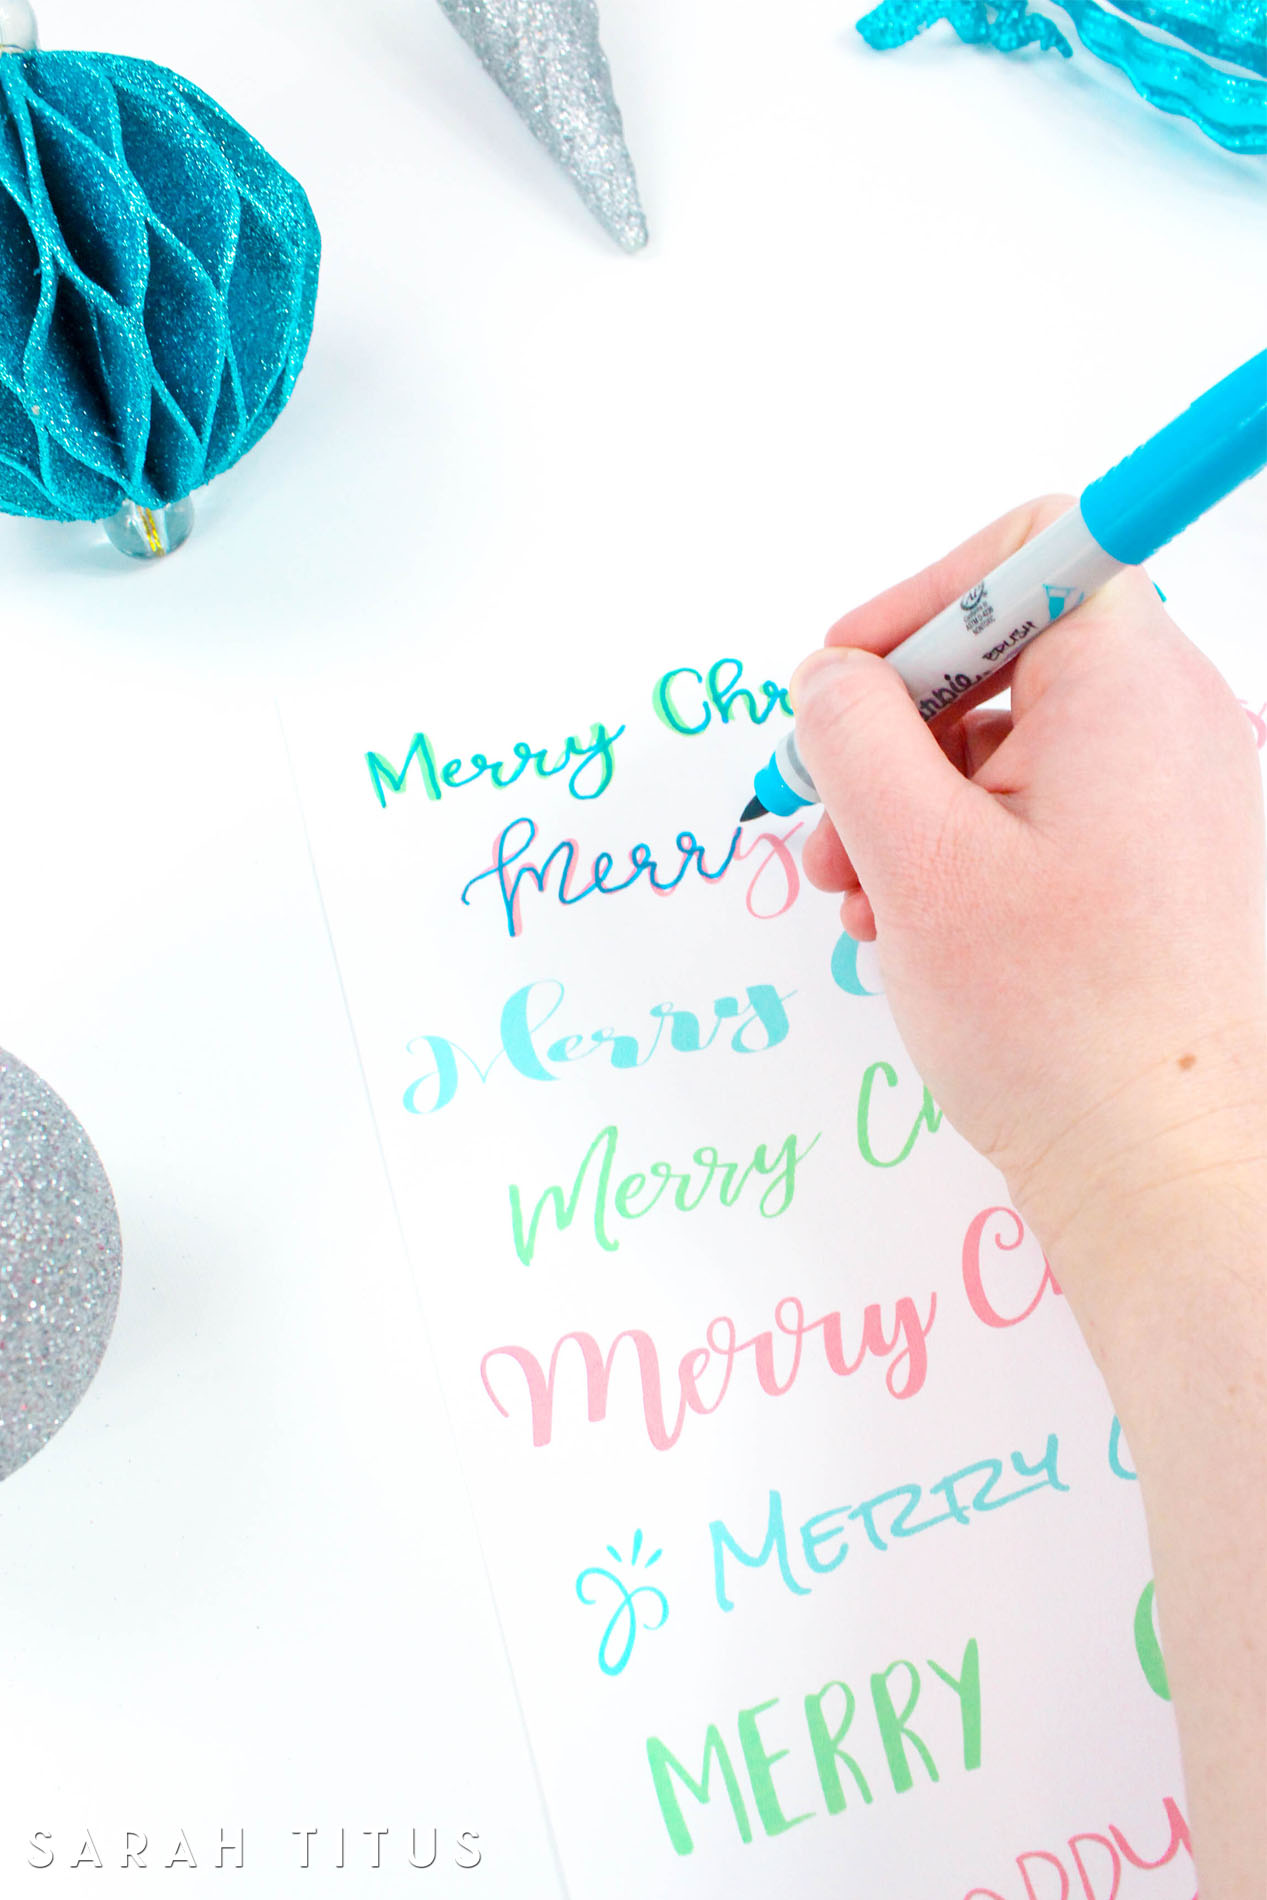 BRUSH
Merry Chr
Merry
Merry C
Merry Ch
Merry Ch
MERRY C
MERRY C
APPY
SARAH TITUS